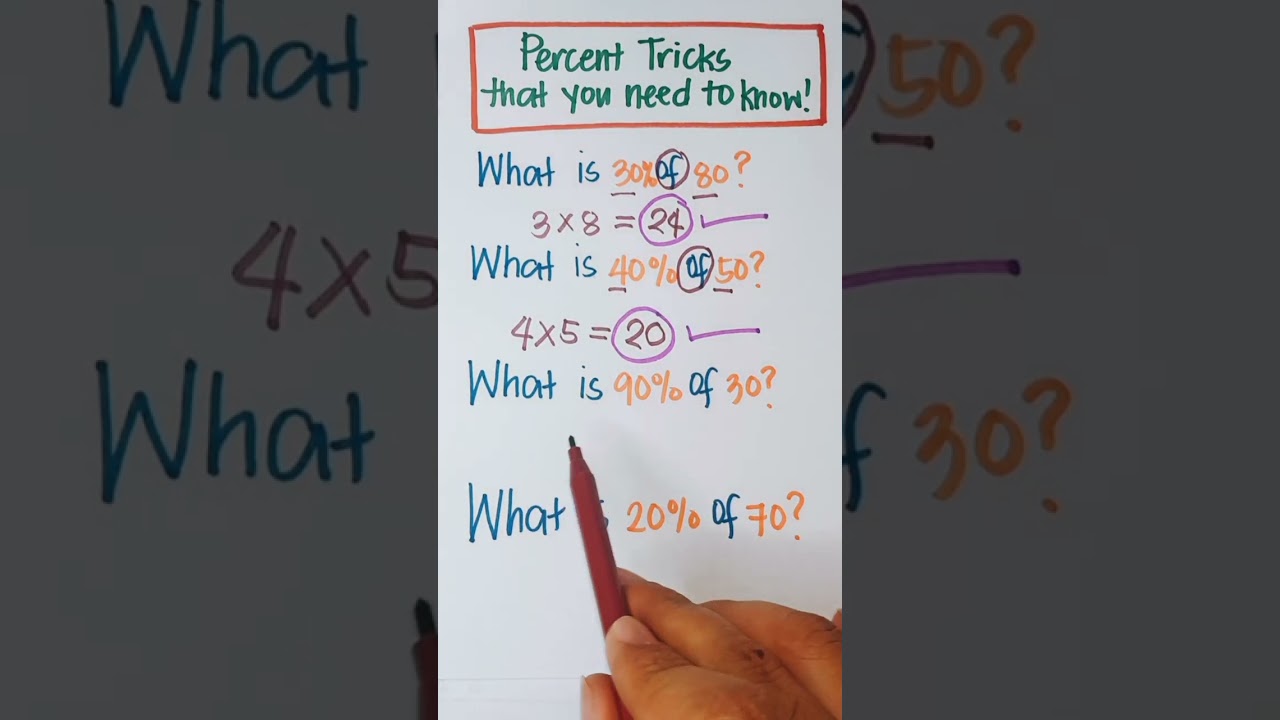 Percent Tricks
that you need to know!
What is 30% of 80?
3 x 8 = 24
What is 40% of 50?
4 x 5 = 20
What is 90% of 30?
What is 20% of 70?